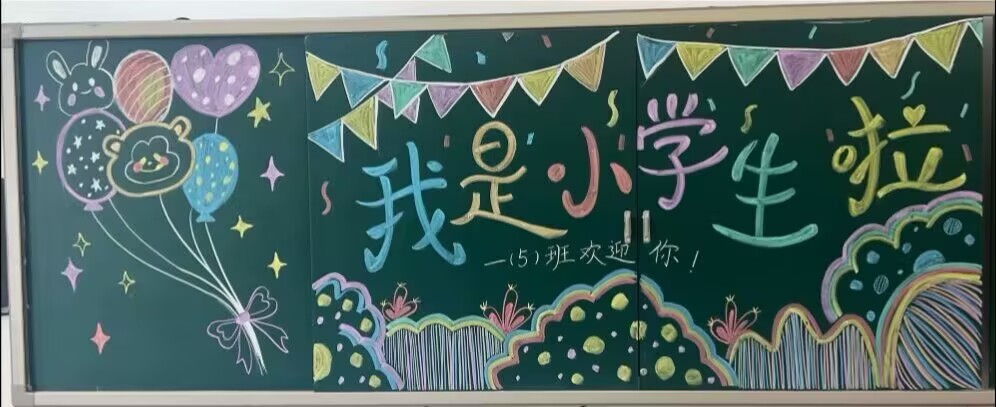 我是小学生啦
一(5)班欢迎你!